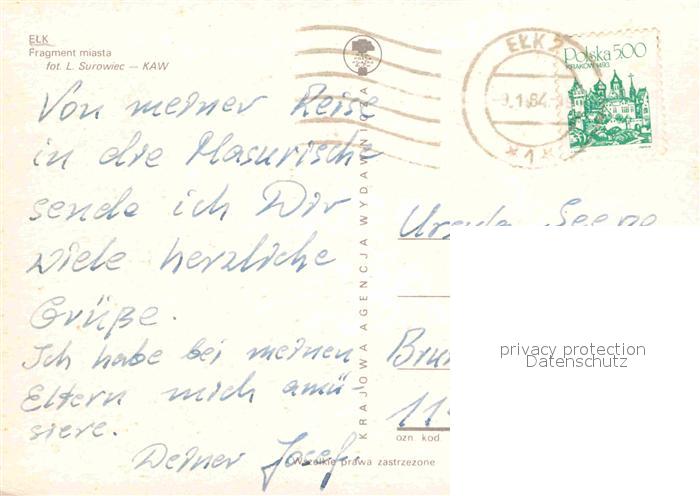 EŁK
Fragment miasta
fot. L. Surowiec — KAW
EŁK 2
9.1.84
*1*
Polska 5.00
KRAKÓW 1493
Von meiner Reise
in die Masurische
sende ich Dir
viele herzliche
Grüße.
Ich habe bei meinen
Eltern mich amü-
siere.
Deiner Josef
KRAJOWA AGENCJA WYDAWNICZA
Ursula
Bru
11
ozn. kod
Wszelkie prawa zastrzeżone
privacy protection
Datenschutz